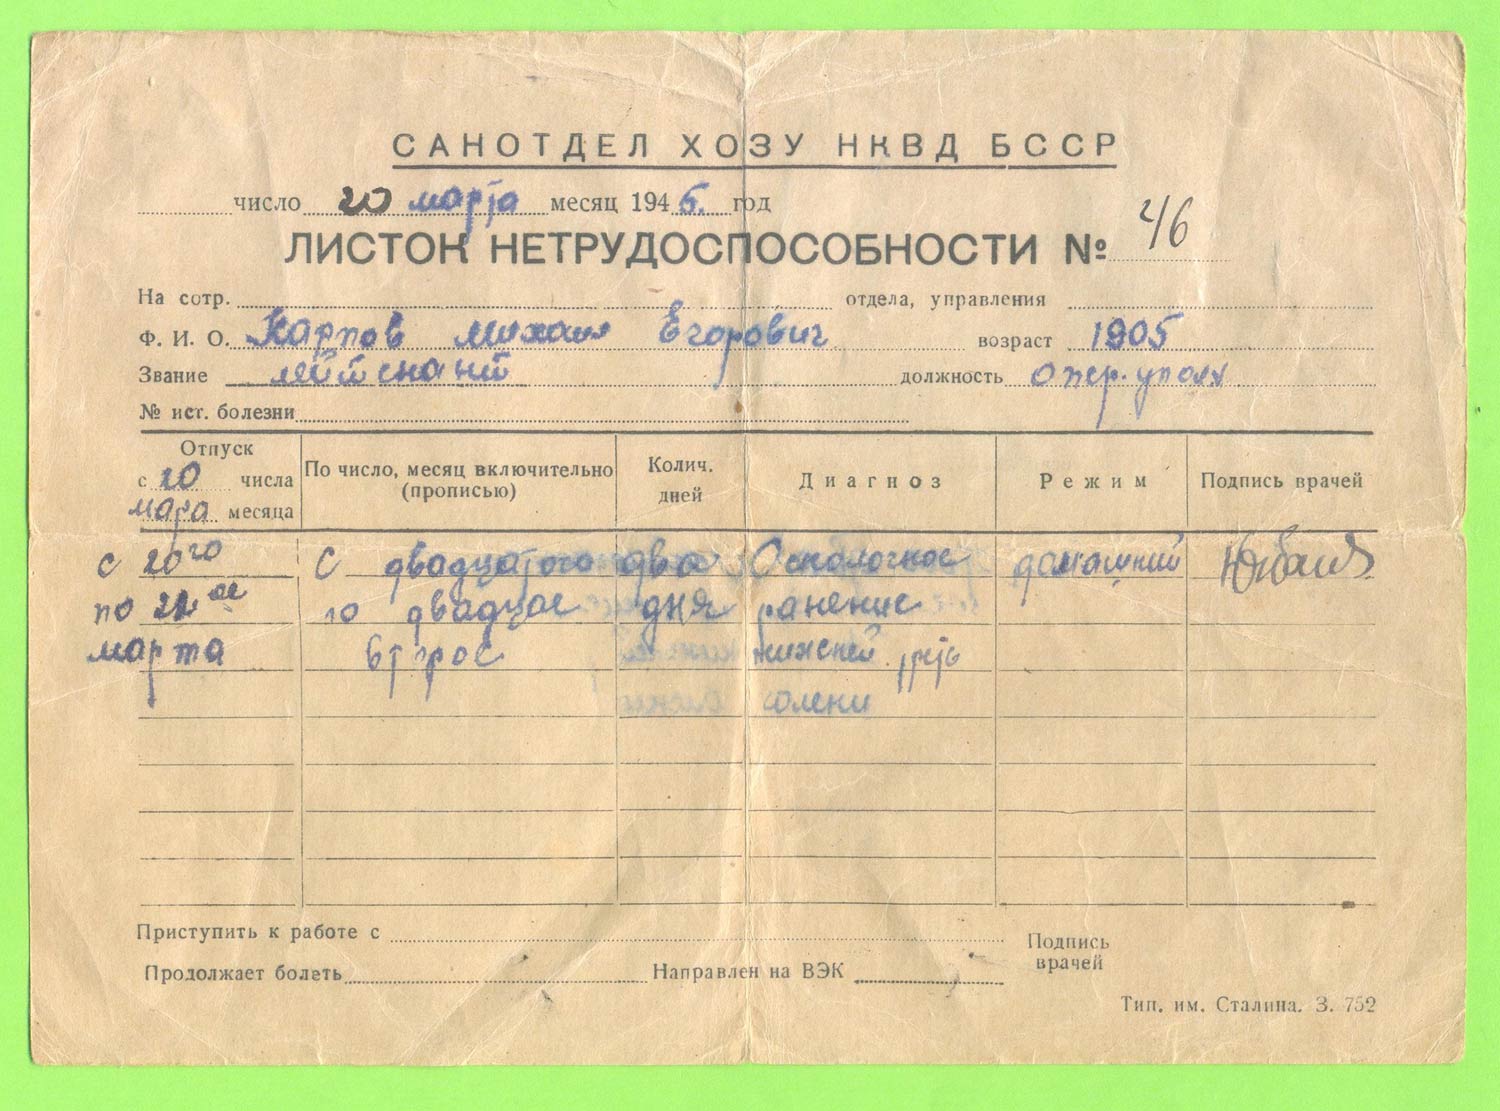 САНОТДЕЛ ХОЗУ НКВД БССР
число 20 марта месяц 1946. год
ЛИСТОК НЕТРУДОСПОСОБНОСТИ № 46
На сотр. отдела, управления
Ф. И. О. Карпов Михаил Егорович возраст 1905
Звание лейтенант должность опер. уполн
№ ист. болезни
Отпуск
с 20 числа
мара месяца
По число, месяц включительно
(прописью)
Колич.
дней
Диагноз
Режим
Подпись врачей
с 20го С двадцатого два Осколочное домашний
по 22ое по двадцое дня ранение
марта второе нижней треть
голени
Приступить к работе с
Подпись
врачей
Продолжает болеть Направлен на ВЭК
Тип. им. Сталина. З. 752